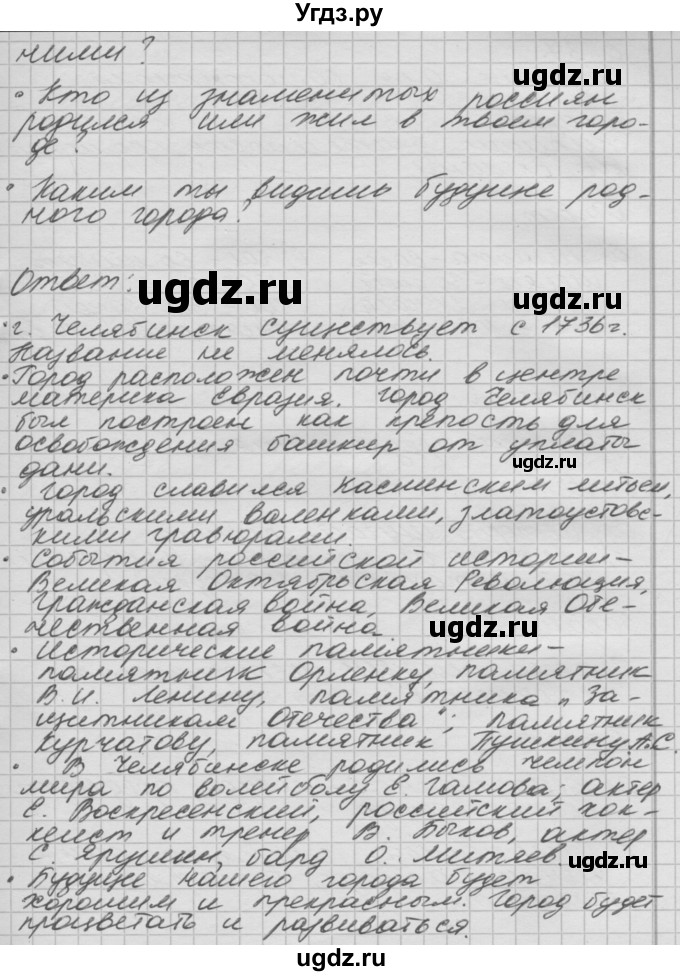 Угдз.ру
ними?
ugdz.ru
• Кто из знаменитых россиян
родился или жил в твоем горо-
де?
• Каким ты видишь будущее род-
ного города?
Ответ:
ugdz.ru
ugdz.ru
• г. Челябинск существует с 1736 г.
Название не менялось.
• Город расположен почти в центре
материка Евразия. Город Челябинск
был построен как крепость для
освобождения башкир от уплаты
дани.
ugdz.ru
• Город славился каслинским литьем,
уральскими валенками, златоустовс-
кими гравюрами.
• События российской истории –
Великая Октябрьская Революция,
Гражданская война, Великая Оте-
чественная война.
ugdz.ru
• Исторические памятники –
памятник Орленку, памятник
В.И. Ленину, памятника „За-
щитникам Отечества"; памятник
Курчатову, памятник Пушкину А.С.
• В Челябинске родились чемпион
мира по волейболу Е. Гамова; актер
Е. Воскресенский, российский хок-
кеист и тренер В. Быков, актер
С. Ярушин, бард О. Митяев.
ugdz.ru
• Будущее нашего города будет
хорошим и прекрасным. Город будет
процветать и развиваться.
ugdz.ru